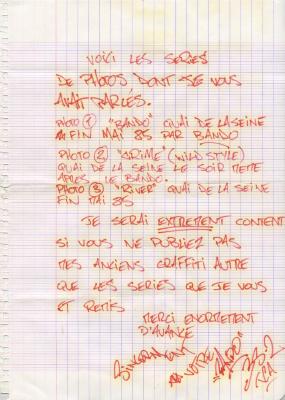 VOICI LES SERIES
DE PHOTOS DONT JE VOUS
AVAIT PARLÉS.
PHOTO ① "BANDO" QUAI DE LA SEINE
FIN MAI 85 PAR BANDO
PHOTO ② "CRIME" (WILD STYLE)
QUAI DE LA SEINE LE SOIR MEME
APRES LE BANDO.
PHOTO ③ "RIVER" QUAI DE LA SEINE
FIN MAI 85
JE SERAI EXTREMENT CONTENT
SI VOUS NE PUBLIEZ PAS
MES ANCIENS GRAFFITI AUTRE
QUE LES SERIES QUE JE VOUS
ET REMIS
MERCI ENORMEMENT
D'AVANCE
VOTRE "BANDO"